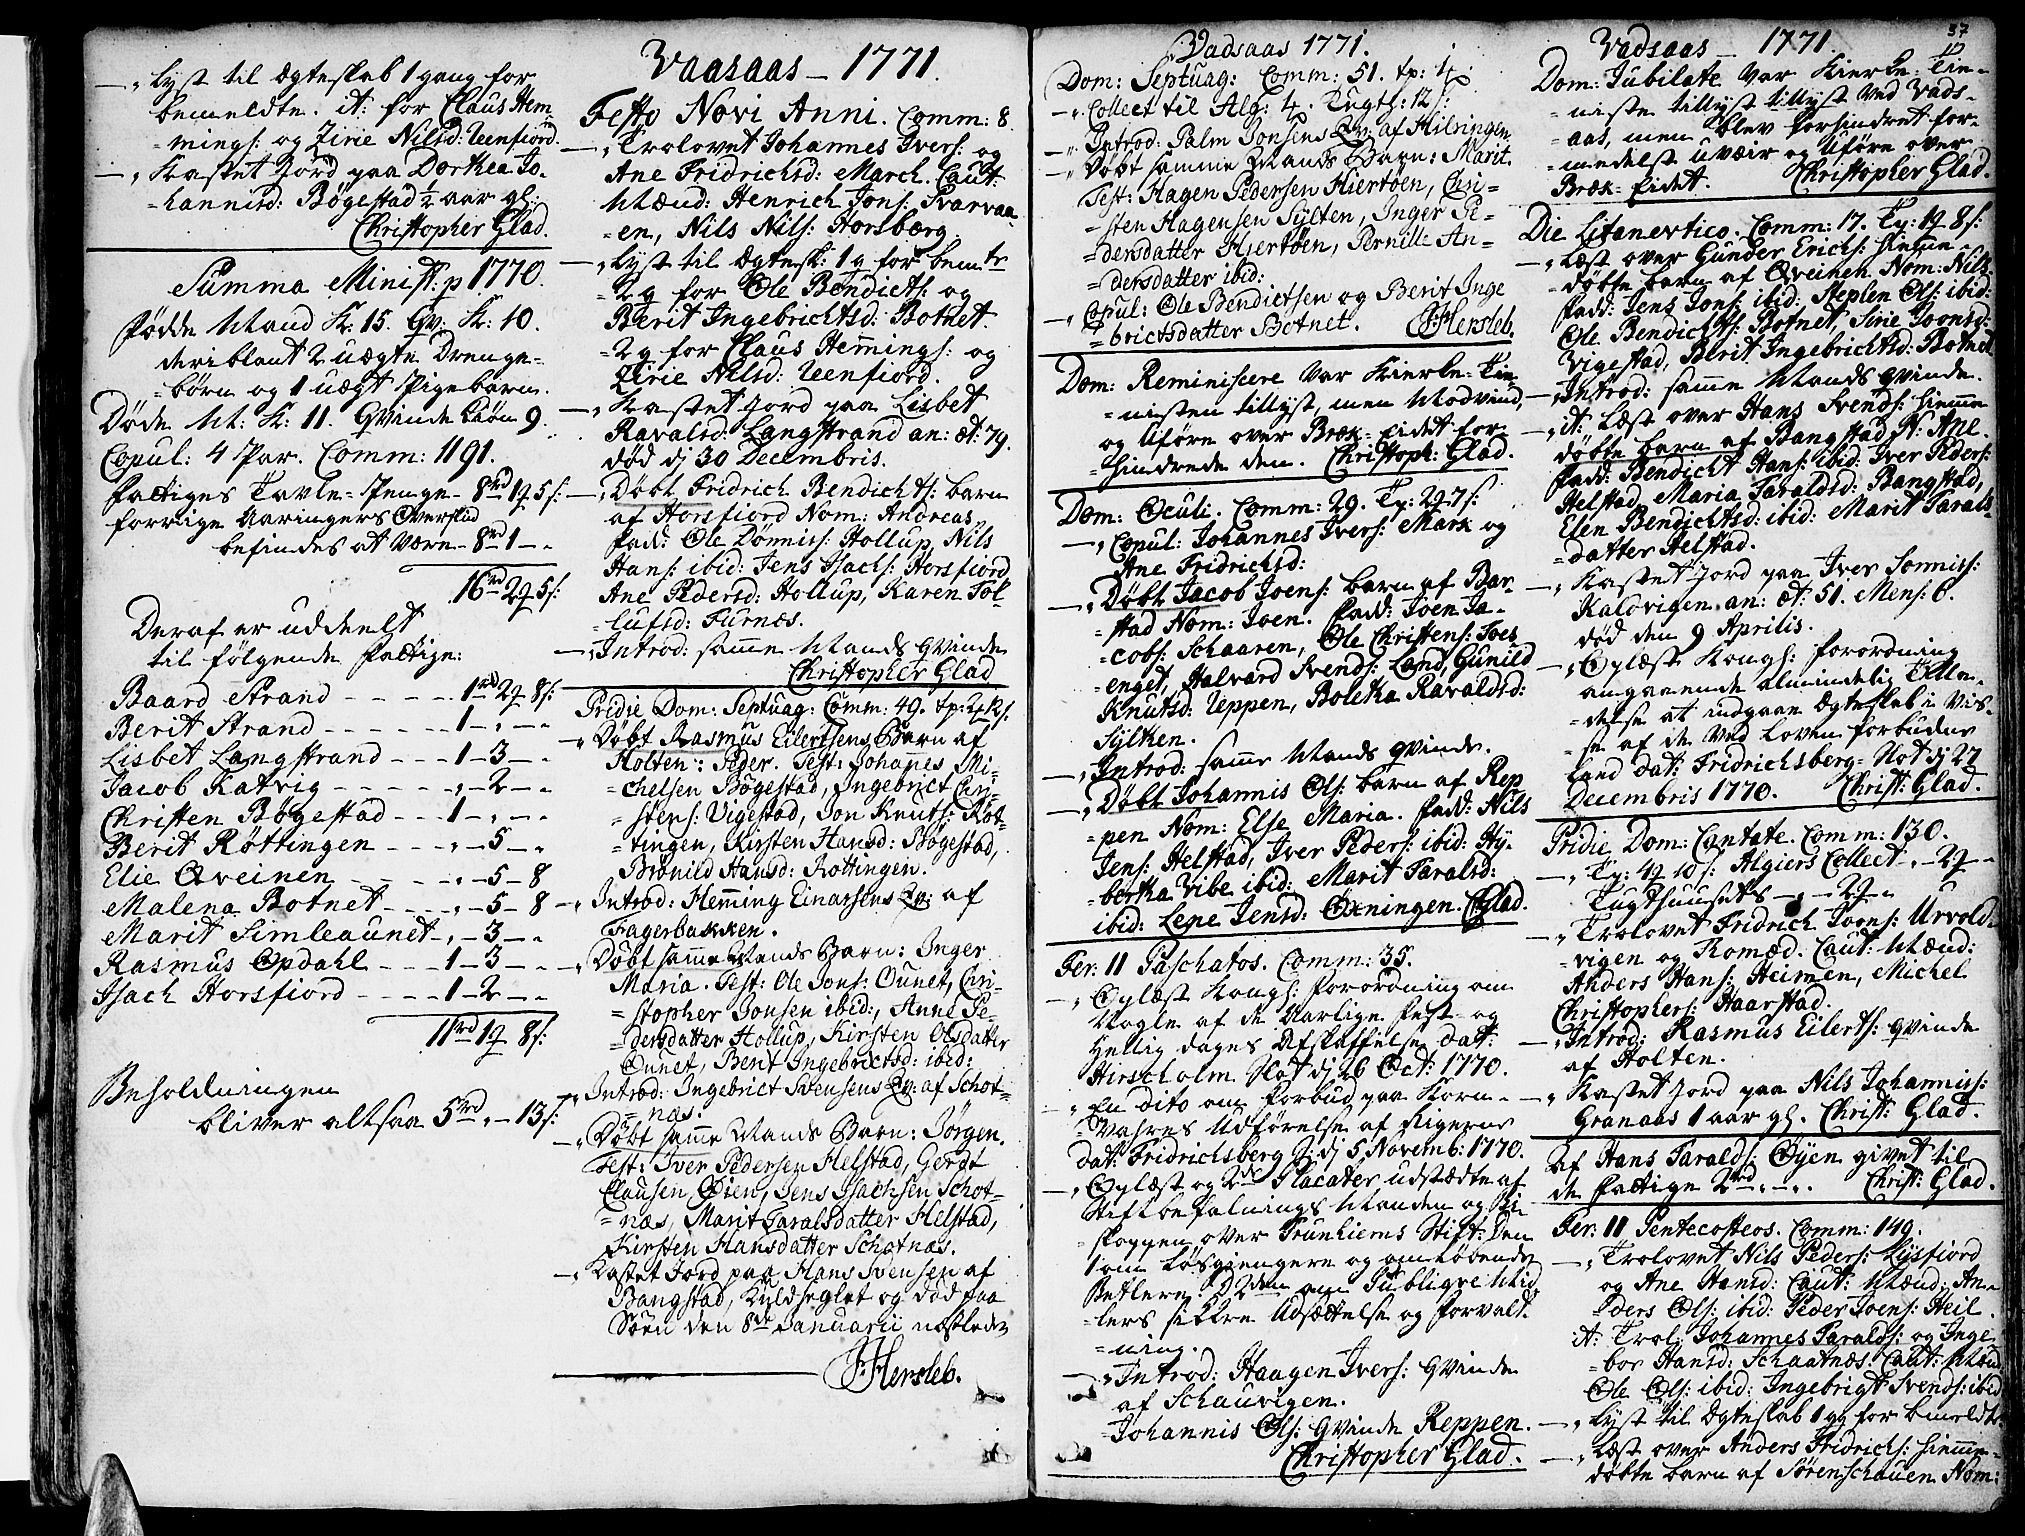 -„ Lyst til Ægteskab 1 gang for
bemeldte. it: for Claus Hem-
=mings: og Zirie Nilsd: Ueenfiord.
-„ Kastet Jord paa Dorthea Jo-
=hannisd: Bögestad ½ aar gl:
Christopher Glad.
Summa Minist: p 1770.
Födde Mand K: 15. Qv: K: 10.
deriblant 2 uægte Drenge-
=börn og 1 uægt Pigebarn.
Döde M: K: 11. Qvinde Kiön 9.
Copul: 4 Par. Comm: 1191.
Fattiges Tavle=Penge - 8rd 1q 5s:
forrige Aaringers Overskud
befindes at være - 8rd 1 - „
16rd 2q 5s:
Deraf er uddeelt
til fölgende Fattige:
Baard Strand - - - 1rd 2q 8s:
Berit Strand - - - 1 - „ - „
Lisbet Langstrand - - - 1 - 3 - „
Jacob Katvig - - - „ - 2 - „
Christen Bögestad - - - 1 - „ - „
Berit Röttingen - - - „ - 5 - „
Elie Qveinen - - - „ - 5 - 8
Malena Botnet - - - „ - 5 - 8
Marit Simleaunet - „ - 3 - „
Rasmus Opdahl - - - 1 - 3 - „
Isach Horsfiord - - - 1 - 2 - „
11rd 1q 8s:
Beholdningen
bliver altsaa 5rd „ - 13s:
Vaasaas - 1771.
Festo Novi Anni. Comm: 8.
-„ Trolovet Johannes Ivers: og
Ane Fridrichsd: March. Caut:
Mænd: Henrich Jons: Svarvaa-
=en, Nils Nils: Horsberg.
-„ Lyst til Ægtesk: 1 g for bemte
=2 g for Ole Bendicts: og
Berit Ingebrichtsd: Botnet.
=2 g for Claus Hemmings: og
Zirie Nilsd: Ueenfiord.
-„ Kastet Jord paa Lisbet
Ravalsd: Langstrand an: æt: 79.
död dj 30 Decembris.
-„ Döbt Fridrich Bendichts: barn
af Horsfiord Nom: Andreas.
Fadd: Ole Dönnis: Hollup, Nils
Hans: ibid: Jens Isachs: Horsfiord
Ane Pedersd: Hollup, Karen Tol-
=lufsd: Furnæs.
-„ Introd: samme Mands qvinde
Christopher Glad
Pridie Dom: Septuag: Comm: 49. tp: 2q 12s.
-„ Döbt Rasmus Eilertsens Barn af
Holten: Peder. Test: Johanes Mi-
=chelsen Bögestad, Ingebrict Chri-
=stens: Vigestad, Jon Knuts: Röt-
=tingen, Kirsten Hansd: Bögestad,
Brönild Hansd: Rottingen.
-„ Introd: Hemming Einarsens Qv: af
Fagerbakken.
-„ Döbt samme Mands Barn: Inger
Maria. Test: Ole Jons: Ounet, Chri-
=stopher Jonsen ibid:, Anne Pe-
=dersdatter Hollup, Kirsten Olsdatter
Ounet, Berit Ingebrictsd: ibid:
-„ Introd: Ingebrict Svensens Qv: af Schot-
=næs.
-„ Döbt samme Mands Barn: Jörgen.
Test: Iver Pedersen Helstad, Gerdt
Clausen Öien, Jens Isachsen Schot-
=næs, Marit Taralsdatter Helstad,
Kirsten Hansdatter Schotnæs.
-„ Kastet Jord paa Hans Svensen af
Bangstad, Kuldseglet og död paa
Söen den 8de Januarii næstleden
JHersleb.
Vadsaas 1771.
Dom: Septuag: Comm: 51. tp: 1q
-„ Collect til Alg: 4. Tugth: 12s:
-„ Introd: Palm Jonsens Qv: af Hilringen
-„ Döbt samme Mands Barn: Marit.
Test: Hagen Pedersen Hiertöen, Chri-
=sten Hagensen Sylten, Inger Pe-
=dersdatter Hiertöen, Pernill: An-
=dersdatter ibid:
-„ Copul: Ole Bendictsen og Berit Inge
=brictsdatter Botnet. JHersleb.
Dom: Reminiscere var Kierke=Tie-
=nisten tillyst, men Modvind,
og Uföre over Bræk=Eidet for-
=hindrede den. Christoph: Glad.
Dom: Oculi. Comm: 29. Tp: 2q 7s:
-„ Copul: Johannes Ivers: Mark og
Ane Fridrichsd:
-„ Döbt Jacob Joens: barn af Bar-
=stad Nom: Joen. Fadd: Joen Ja-
=cobs: Schaaren, Ole Christens: Toes
=enget, Halvard Svends: Land, Gunild
Knutsd: Ueppen, Boletha Ravaldsd:
Sylten.
-„ Introd: samme Mands qvinde.
-„ Döbt Johannis Ols: barn af Rep
=pen Nom: Else Maria. Fadd: Nils
Jens: Helstad, Iver Peders: ibid: Hy-
=bertha Vibe ibid: Marit Taralsd:
ibid: Lene Jensd: Oxningen. CGlad.
Fer: II Paschatos. Comm: 35.
-„ Oplæst Kongs: Forordning om
Nogle af de Aarlige Fest- og
Hellig dages Afskaffelse, dat:
Hirscholm Slot dj 26 Oct: 1770.
-„ En dito om Forbud paa Korn-
=Vahres Udförelse af Rigerne
dat: Fridrichsberg S: dj 5 Novemb: 1770.
-„ Oplæst og 2de Placater udstædte af
Stiftbefalnings Manden og Bi-
=skoppen over Trunhiems Stift: Den
1 om Lösgiengere og omlöbende
Betlere. D 2den om Publiqve Mid
=lers sikkre Udsættelse og Forvalt-
=ning.
-„ Introd: Haagen Ivers: qvinde
af Schauvigen.
-Johannis Ols: qvinde Reppen.
Christopher Glad.
37
Vadsaas - 1771.
Dom: Jubilate var Kierke=Tie-
=niste tillyst tillyst ved Vads-
=aas, men blev forhindret for-
=medelst uveir og Uföre over
Bræk=Eidet. Christopher Glad.
Die Litanevtico. Comm: 17. Tp: 1q 8s:
-„ Læst over Gunder Erichs: hiemme-
=döbte barn af Qveinen. Nom: Nils.
Fadd: Jens Jons: ibid: Steplen Ols: ibid:
Ole Bendichts: Botnet, Sirie Joensd:
Vigestad, Berit Ingebrichtsd: Botnet
-„ Introd: samme Mands qvinde.
-„ it: Læst over Hans Svends: hiemme
döbte barn af Bangstad N: Ane.
Fadd: Bendicht Hans: ibid: Iver Peders:
Helstad, Maria Taraldsd: Bangstad,
Elen Bendichtsd: ibid: Marit Tarals-
=datter Helstad.
-„ Kastet Jord paa Iver Sonnis:
Kalövigen an: æt: 51. Mens: 6.
död den 9 Aprilis.
-„ Oplæst Kongs: Forordning
angaaende almindelig Tilla-
=delse at indgaae Ægteskab i vis-
=se af de ved Loven forbudne
Læd dat: Fridrichsberg=Slot dj 27
Decembris 1770. Christ: Glad.
Pridie Dom: Cantate. Comm: 130.
-„ Tp: 4q 10s: Algiers Collect „ - 2q -
Tugthuusets - „ - 2q - „
-„ Trolovet Fridrich Joens: Urvold-
=vigen og Romæd. Caut: Mænd:
Anders Hans: Heimen, Michel
Christophers: Haarstad.
-„ Introd: Rasmus Eilerts: qvinde
af Holten.
-„ Kastet Jord paa Nils Johannis:
Granaas 1 aar gl. Christ: Glad.
Af Hans Tarald: Öyen givet til
de Fattige 2rd „ - „. Christ: Glad.
Fer: II Pentecosteos. Comm: 149.
-„ Trolovet Nils Peders: Lysfiord
og Ane Hansd: Caut: Mænd: An-
=ders Ols: ibid: Peder Joens: Heil.
it: Trol: Johannes Taralds: og Inge
=bor Hansd: Schaatnæs. Caut: Mænd
Ole Ols: ibid: Ingebrigt Svends: ibid
-„ Lyst til Ægteskab 1 gg for bmeldte
-„ Læst over Anders Fridrichs: hiemme-
=döbte barn af Sörenschauen Nom: